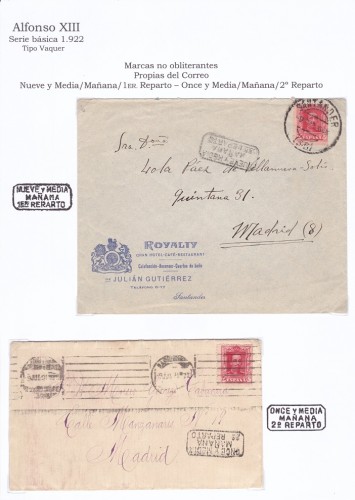 Alfonso XIII
Serie básica 1.922
Tipo Vaquer
Marcas no obliterantes
Propias del Correo
Nueve y Media/Mañana/1ER. Reparto – Once y Media/Mañana/2º Reparto
SANTANDER
Sra. Doña
Lola Páez de Villanueva-Solís
Quintana 31.
Madrid (8)
NUEVE Y MEDIA
MAÑAMA
1ER RERARTO
ROYALTY
GRAN HOTEL-CAFÉ-RESTAURANT
Calefacción-Ascensor-Cuartos de baño
DE JULIÁN GUTIÉRREZ
TELÉFONO
Santander
ONCE Y MEDIA
MAÑANA
2º REPARTO
Calle Manzanares
ONCE Y MEDIA
MAÑANA
2º REPARTO
Madrid